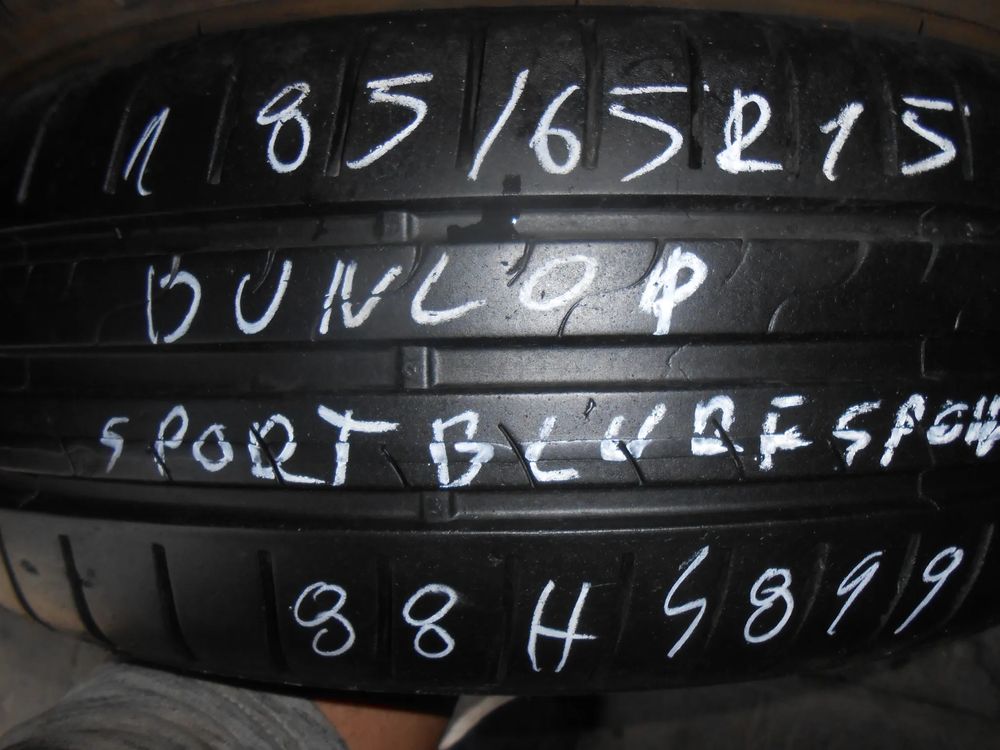 185/65R15
DUNLOP
SPORT BLURESPON
88H S899